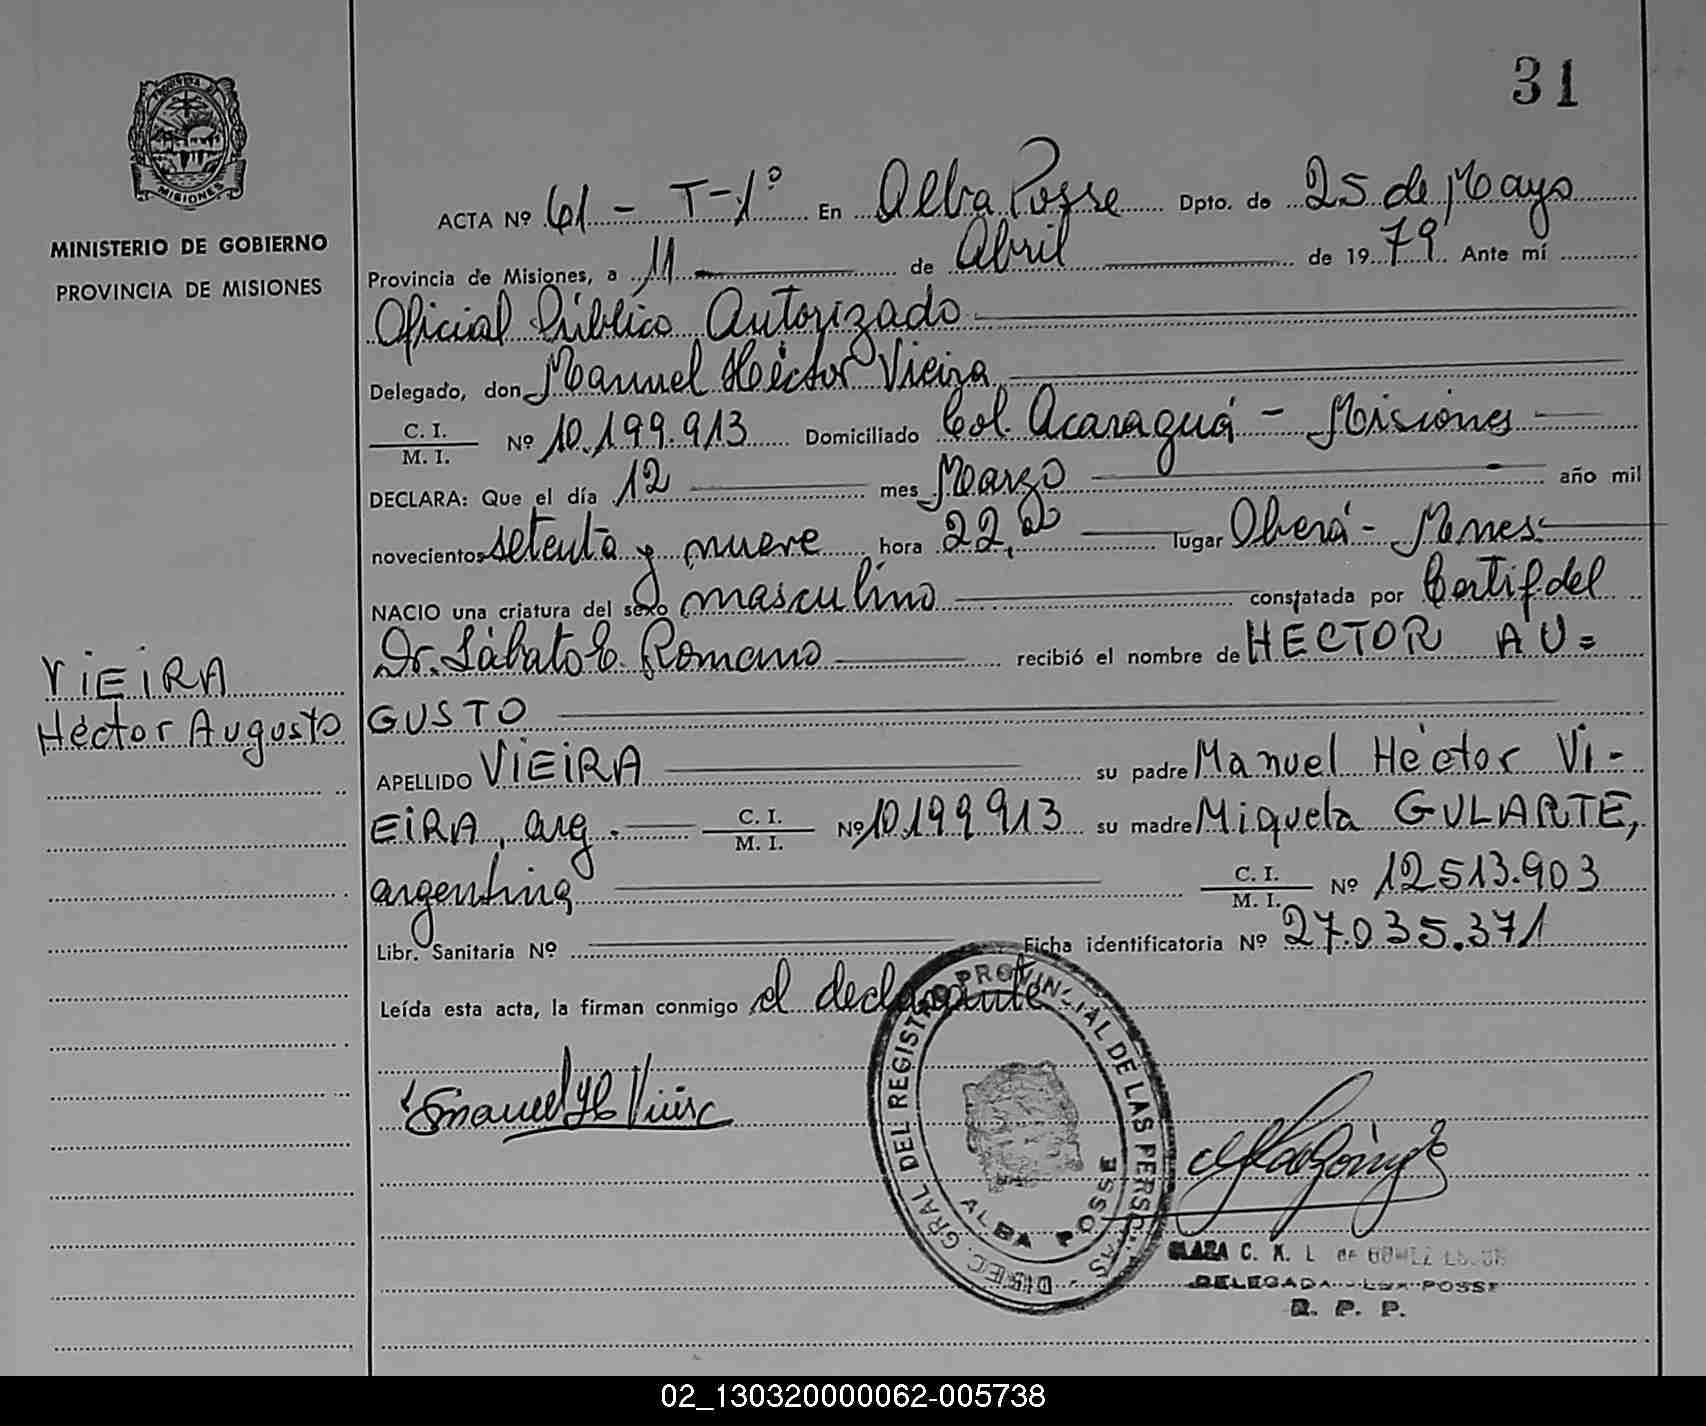 31
PROVINCIA DE
MISIONES
MINISTERIO DE GOBIERNO
PROVINCIA DE MISIONES
ACTA Nº 61 - T-1º En Alba Posse Dpto. de 25 de Mayo
Provincia de Misiones, a 11 de Abril de 1979 Ante mí
Oficial Público Autorizado
Delegado, don Manuel Héctor Vieira
C. I.
M. I. Nº 10.199.913 Domiciliado Col. Acaraguá - Misiones
DECLARA: Que el día 12 mes Marzo año mil
novecientos setenta y nueve hora 22,00 lugar Oberá - Mnes
NACIO una criatura del sexo masculino constatada por Certif. del
Dr. Sábato E. Romano recibió el nombre de HECTOR AU=
GUSTO
VIEIRA
Héctor Augusto
APELLIDO VIEIRA su padre Manuel Héctor VI-
EIRA, arg. C. I.
M. I. Nº 10199913 su madre Miquela GULARTE,
argentina C. I.
M. I. Nº 12513.903
Libr. Sanitaria Nº Ficha identificatoria Nº 27.035.371
Leída esta acta, la firman conmigo el declarante
Manuel H Vieira
DIREC. GRAL DEL REGISTRO PROVINCIAL DE LAS PERSONAS
ALBA POSSE
CLARA C. K. L de GOMEZ
DELEGADA POSSE
R. P. P.
02_130320000062-005738